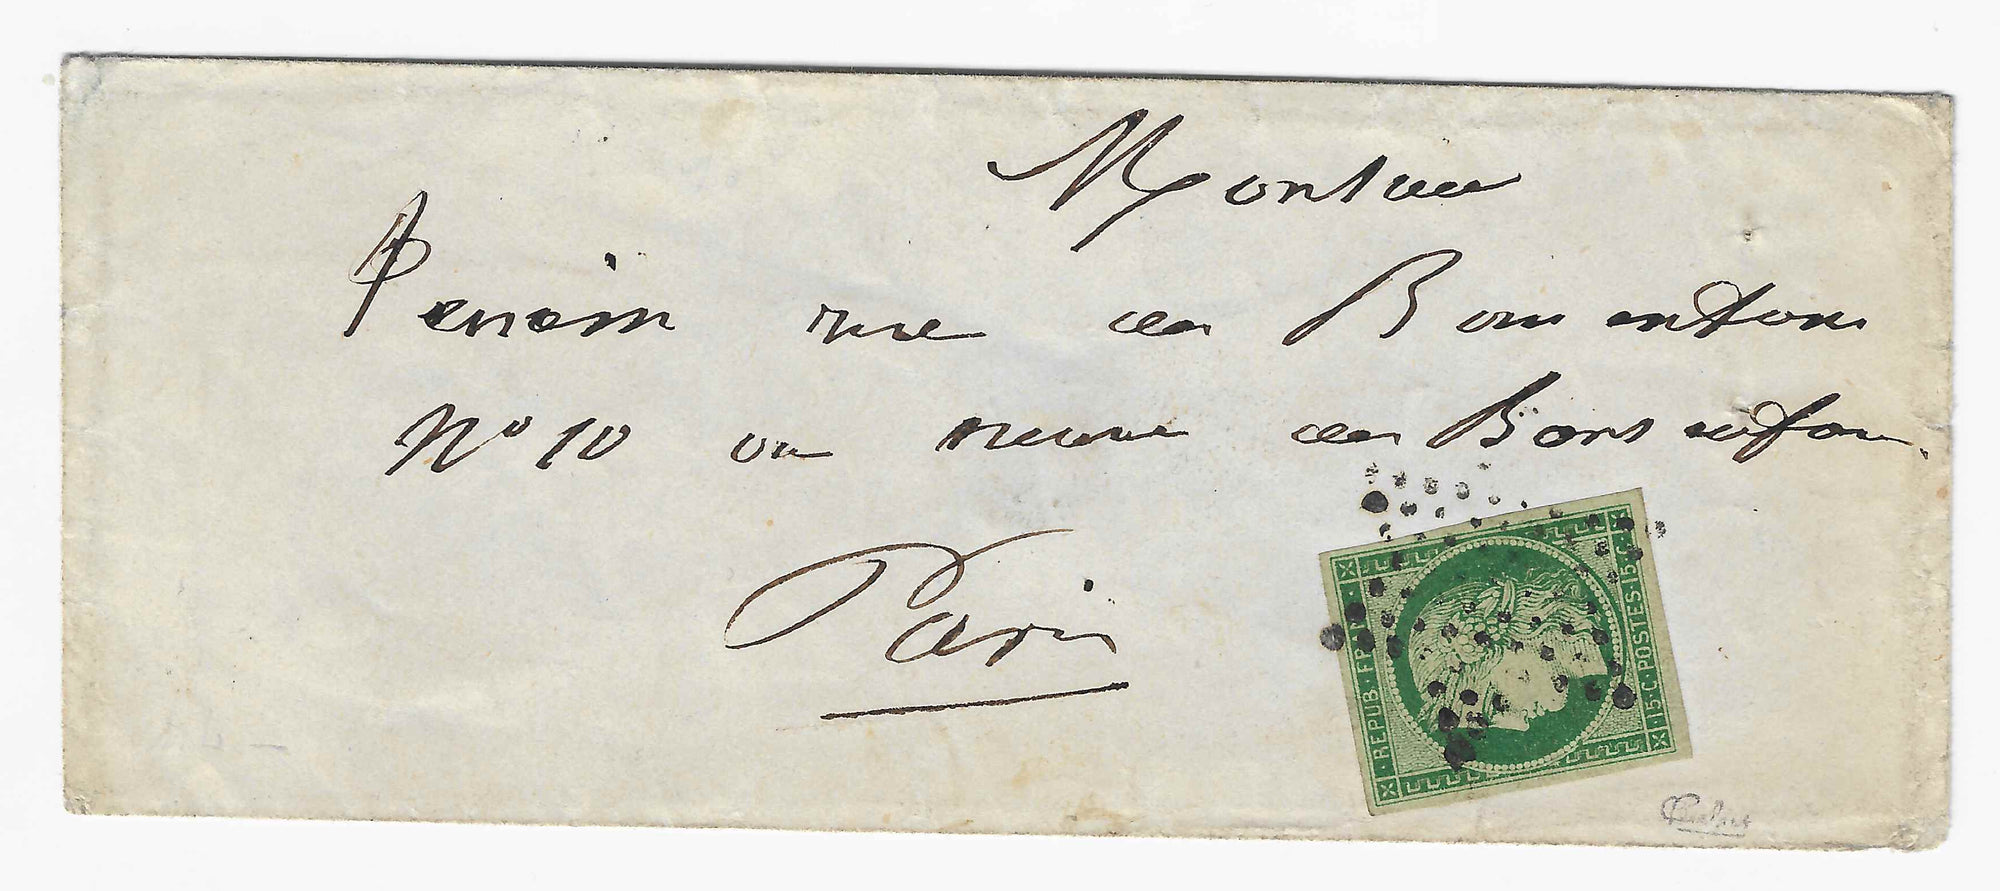 Monsieur
rue des Bons enfans
No 10 ou neuve des Bons enfans.
Paris
REPUB. FRANC.
15.C.POSTES.15.C.